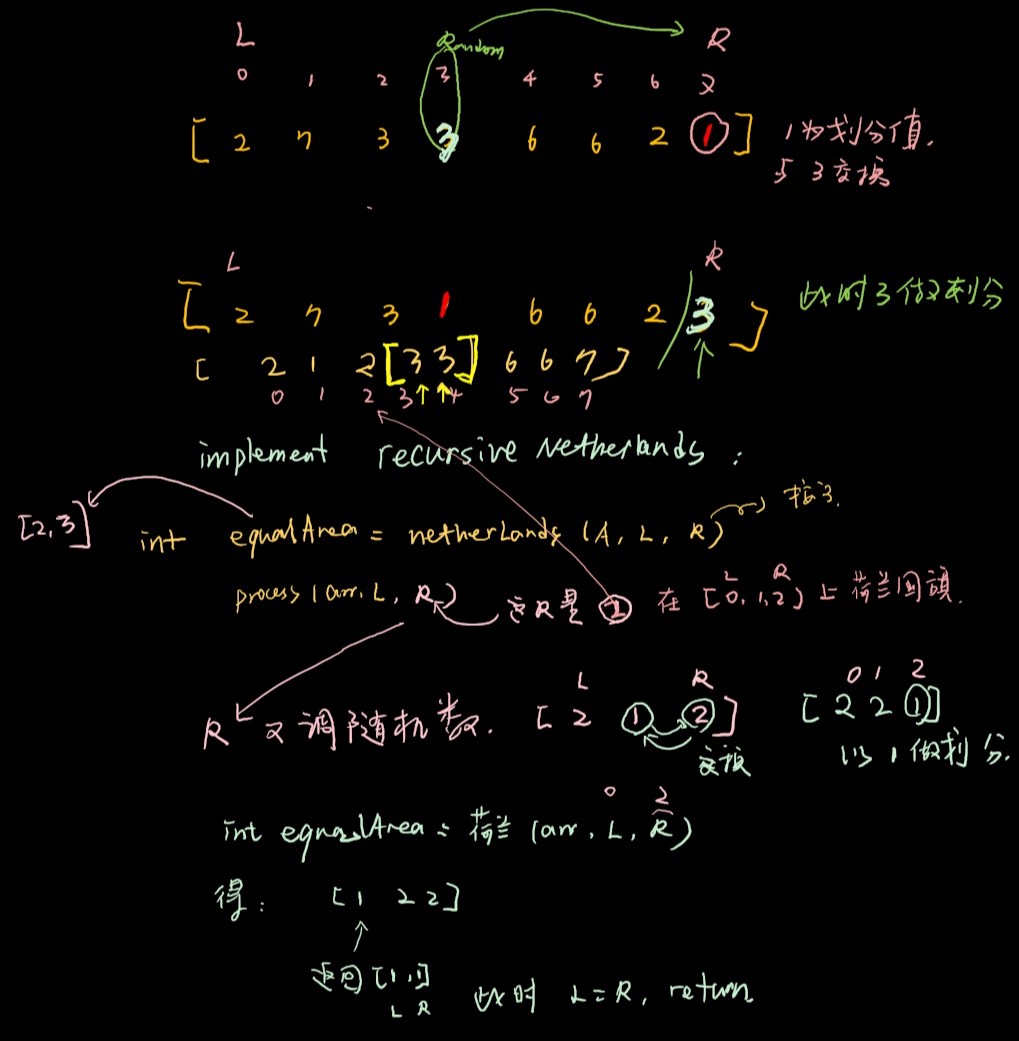 L Random R
0 1 2 3 4 5 6 7
[ 2 7 3 3 6 6 2 1 ] 1为划分值,
与3交换
L R
[ 2 7 3 1 6 6 2 / 3 ] 此时3做划分
[ 2 1 2 [3 3] 6 6 7 ]
0 1 2 3 4 5 6 7
implement recursive Netherlands :
[2,3] int equalArea = netherlands (A, L, R)
process (arr, L, R) 这R是② 在 [0,1,2) 上荷兰国旗.
L R
L R 0 1 2
R 又调随机数. [ 2 ① ② ] [ 2 2 ① ]
交换 以1做划分.
0 2
int equalArea = 荷兰 (arr, L, R)
得: [ 1 2 2 ]
返回 [1,1]
L R 此时 L=R, return